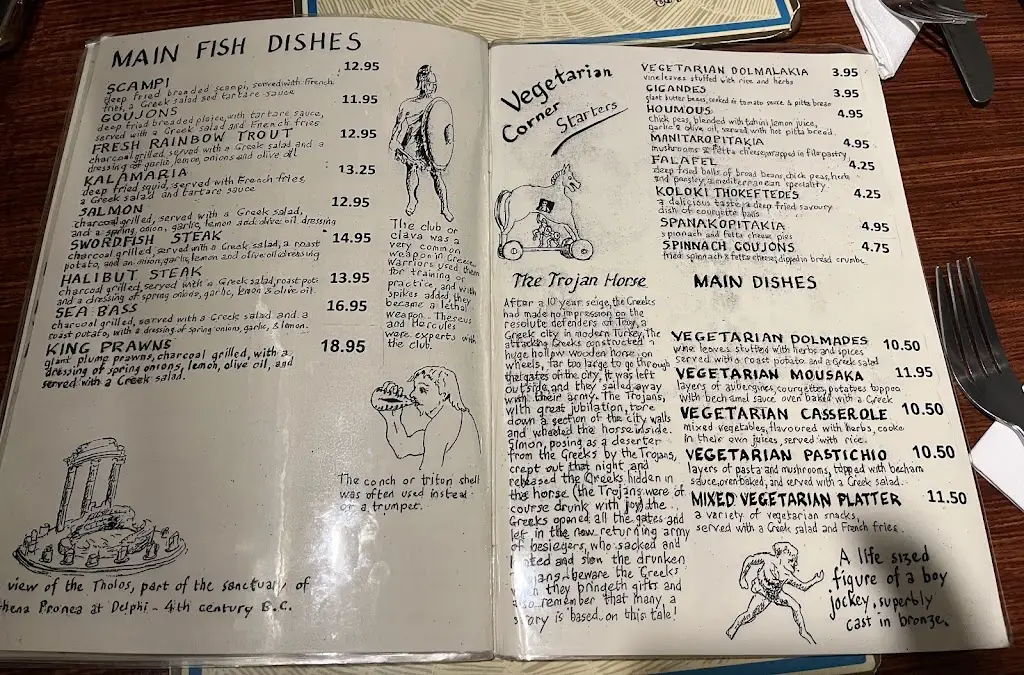 MAIN FISH DISHES
SCAMPI 12.95
deep fried breaded scampi, served with French
fries, a Greek salad and tartare sauce
GOUJONS 11.95
deep fried breaded plaice, with tartare sauce,
served with a Greek salad and French fries
FRESH RAINBOW TROUT 12.95
charcoal grilled, served with a Greek salad and a
dressing of garlic, lemon, onions and olive oil
KALAMARIA 13.25
deep fried squid, served with French fries,
a Greek salad and tartare sauce
SALMON 12.95
charcoal grilled, served with a Greek salad,
and a spring onion, garlic, lemon and olive oil dressing
SWORDFISH STEAK 14.95
charcoal grilled, served with a Greek salad, a roast
potato, and an onion, garlic, lemon and olive oil dressing
HALIBUT STEAK 13.95
charcoal grilled, served with a Greek salad, roast pot
and a dressing of spring onions, garlic, lemon & olive oil.
SEA BASS 16.95
charcoal grilled, served with a Greek salad and a
roast potato, with a dressing of spring onions, garlic, & lemon.
KING PRAWNS 18.95
giant plump prawns, charcoal grilled, with a
dressing of spring onions, lemon, olive oil, and
served with a Greek salad.
The club or
clava was a
very common
weapon in Greece
Warriors used them
for training or
practice, and with
spikes added, they
became a lethal
weapon. Theseus
and Hercules
were experts with
the club.
The conch or triton shell
was often used instead
of a trumpet.
view of the Tholos, part of the sanctuary of
thena Pronea at Delphi - 4th century B.C.
Vegetarian
Corner
Starters
VEGETARIAN DOLMALAKIA 3.95
vine leaves stuffed with rice and herbs
GIGANDES 3.95
giant butter beans, cooked in tomato sauce & pitta bread
HOUMOUS 4.95
chick peas, blended with tahini lemon juice,
garlic & olive oil, served with hot pitta bread.
MANITAROPITAKIA 4.95
mushrooms & fetta cheese wrapped in filo pastry
FALAFEL 4.25
deep fried balls of broad beans, chick peas, herb
and parsley, a mediterranean speciality.
KOLOKI THOKEFTEDES 4.25
a delicious taste, a deep fried savoury
dish of courgette balls
SPANAKOPITAKIA 4.95
spinnach and fetta cheese pies
SPINNACH GOUJONS 4.75
fried spinach & fetta cheese, dipped in bread crumbs
The Trojan Horse
After a 10 year seige, the Greeks
had made no impression on the
resolute defenders of Troy, a
Greek city in modern Turkey. The
attacking Greeks constructed a
huge hollow wooden horse, on
wheels, far too large to go through
the gates of the city, it was left
outside, and they sailed away
with their army. The Trojans,
with great jubilation, tore
down a section of the city walls
and wheeled the horse inside.
Simon, posing as a deserter
from the Greeks by the Trojans,
crept out that night and
released the Greeks hidden in
the horse (the Trojans were of
course drunk with joy) the
Greeks opened all the gates and
let in the now returning army
of besiegers, who sacked and
and slew the drunken
beware the Greeks
they bringeth gifts and
also remember that many a
story is based on this tale!
MAIN DISHES
VEGETARIAN DOLMADES 10.50
vine leaves stuffed with herbs and spices
served with a roast potato and a Greek salad
VEGETARIAN MOUSAKA 11.95
layers of aubergines, courgettes, potatoes topped
with bechamel sauce oven baked with a Greek
VEGETARIAN CASSEROLE 10.50
mixed vegetables, flavoured with herbs, cooke
in their own juices, served with rice.
VEGETARIAN PASTICHIO 10.50
layers of pasta and mushrooms, topped with becham
sauce, oven baked, and served with a Greek salad.
MIXED VEGETARIAN PLATTER 11.50
a variety of vegetarian snacks,
served with a Greek salad and French fries.
A life sized
figure of a boy
jockey, superbly
cast in bronze.